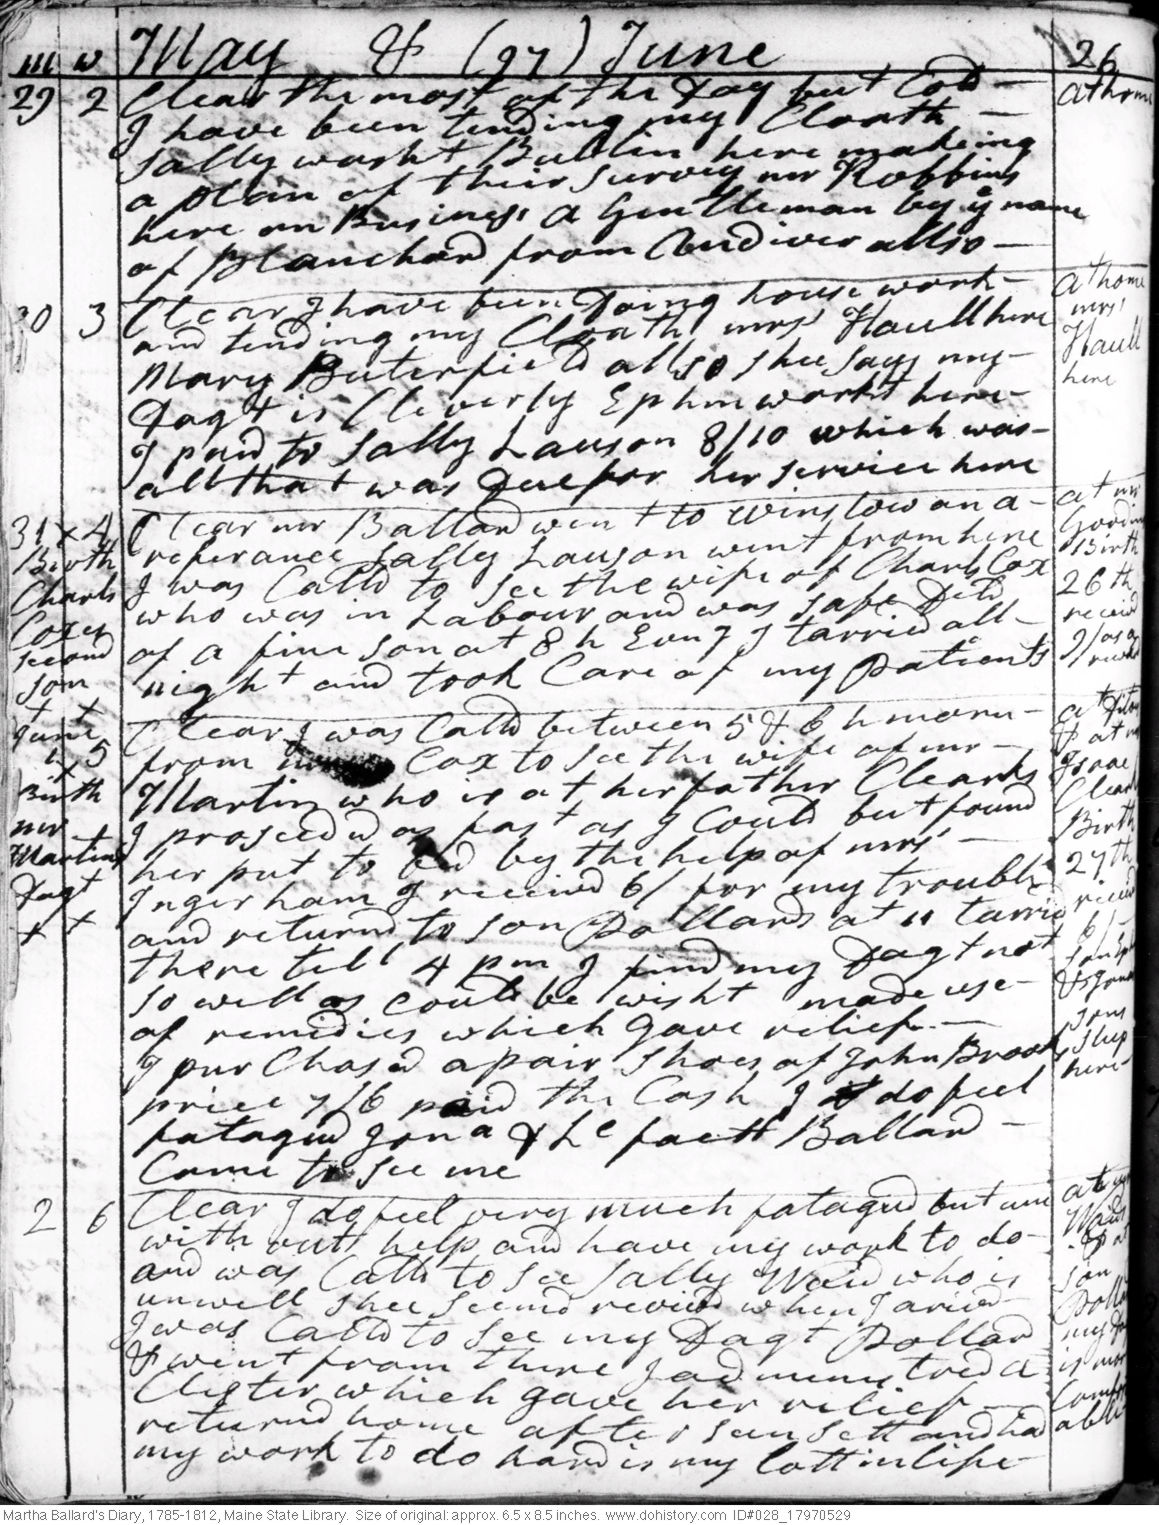 m w May & (97) June 26
29 2 Clear the most of the Day but Cold – at home
I have been tending my Cloath –
Sally washt Bullin here makeing
a plan of their Survey mr Robbins
here on Business, a Gentleman by ye name
of Blanchard from Anduiver allso –
30 3 Clear I have been Doing house work – at home
and tending my Cloath mrs Haull here mrs
Mary Buterfield allso shee says my – Haull
Dagt is Cleverly Ephm workt here – here
I paid to Sally Lauson 8/10 which was –
all that was Due for her service here
31 x 4 Clear mr Ballard went to Winslow on a – at mr
Birth referance Sally Lauson went from here
Charls I was Calld to see the wife of Charls Cox Birth
Coxes who was in Labour and was safe Deld 26th
second of a fine son at 8 h Evng I tarried all – receivd
son night and took Care of my patients
x x
June Clear I was Calld between 5 & 6 h morn –
1 5 from Cox to see the wife of mr – & at mr
x Martin who is at her father Clearks Isaac
Birth I proseedd as fast as I Could but found
mr her put to bed by the help of mrs – Birth
Martins Ingerham I receivd 6/ for my trouble 27th
Dagt and returnd to son Pollards at 11 tarried
x x there till 4 pm I find my Dagt not 6/
so well as could be wisht made use –
of remidies which gave relief –
I purchased a pair Shoes of John Brooks sons
price 7/6 paid the Cash I do feel sleep
fatagud Jona & he faett Ballard – here –
Came to see me
2 6 Clear I do feel very much fatagud but am
with outt help and have my work to do –
and was Calld to see Sally Waid who is
unwell shee seemd revivd when I arivd – son
I was Calld to see my Dagt Pollard
& went from there I admenistred a
Clister which gave her relief –
returnd home after sun sett and had
my work to do hard is my lott in life –
Martha Ballard's Diary, 1785-1812, Maine State Library. Size of original: approx. 6.5 x 8.5 inches. www.dohistory.com ID#028_17970529